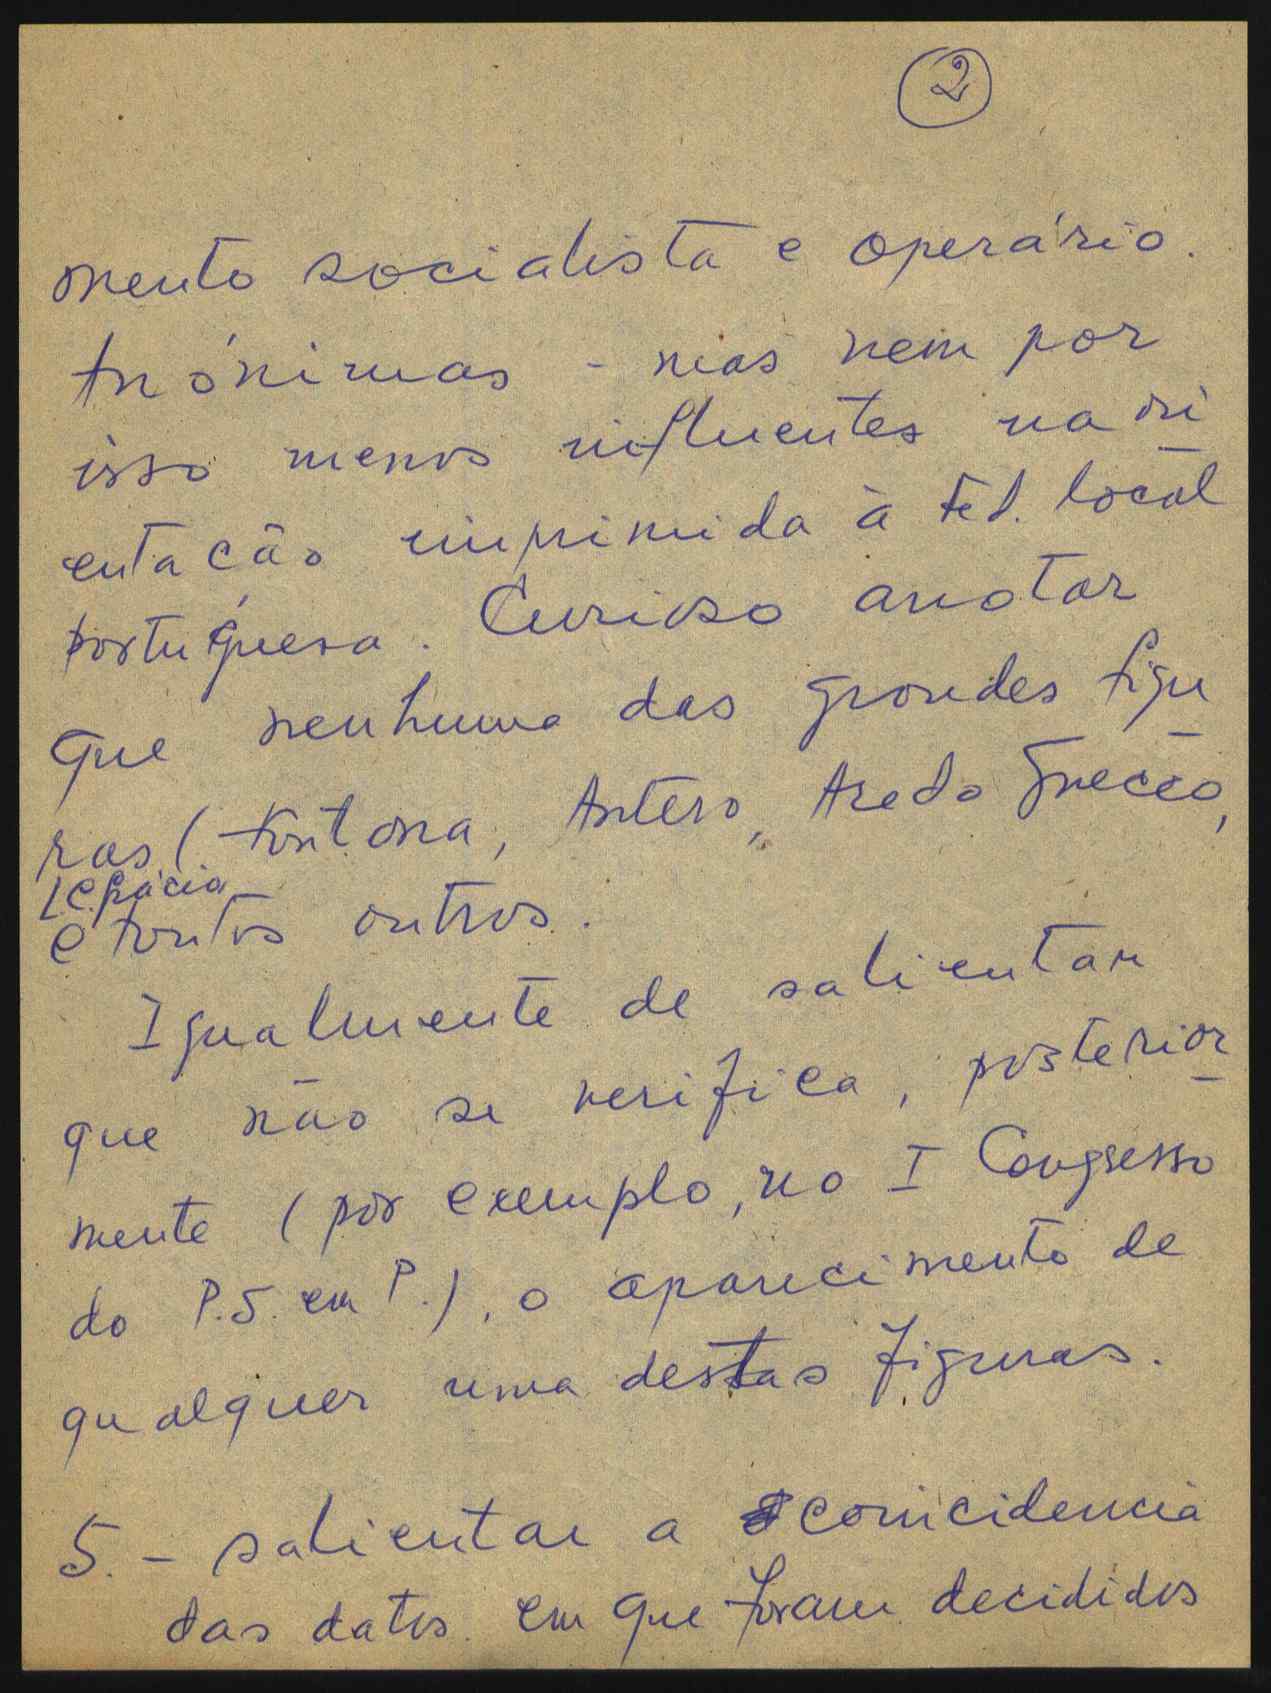 2
mento socialista e operário.
Anónimas - mas nem por
isso menos influentes na ori
entação imprimida à Fed. local
portuguesa. Curioso anotar
que nenhuma das grandes figu
ras (Fontana, Antero, Azedo Gnecco,
e tantos outros.
Igualmente de salientar
que não se verifica, posterior
mente (por exemplo, no I Congresso
do P.S. em P.), o aparecimento de
qualquer uma destas figuras.
5. - salientar a coincidencia
das datas em que foram decididos